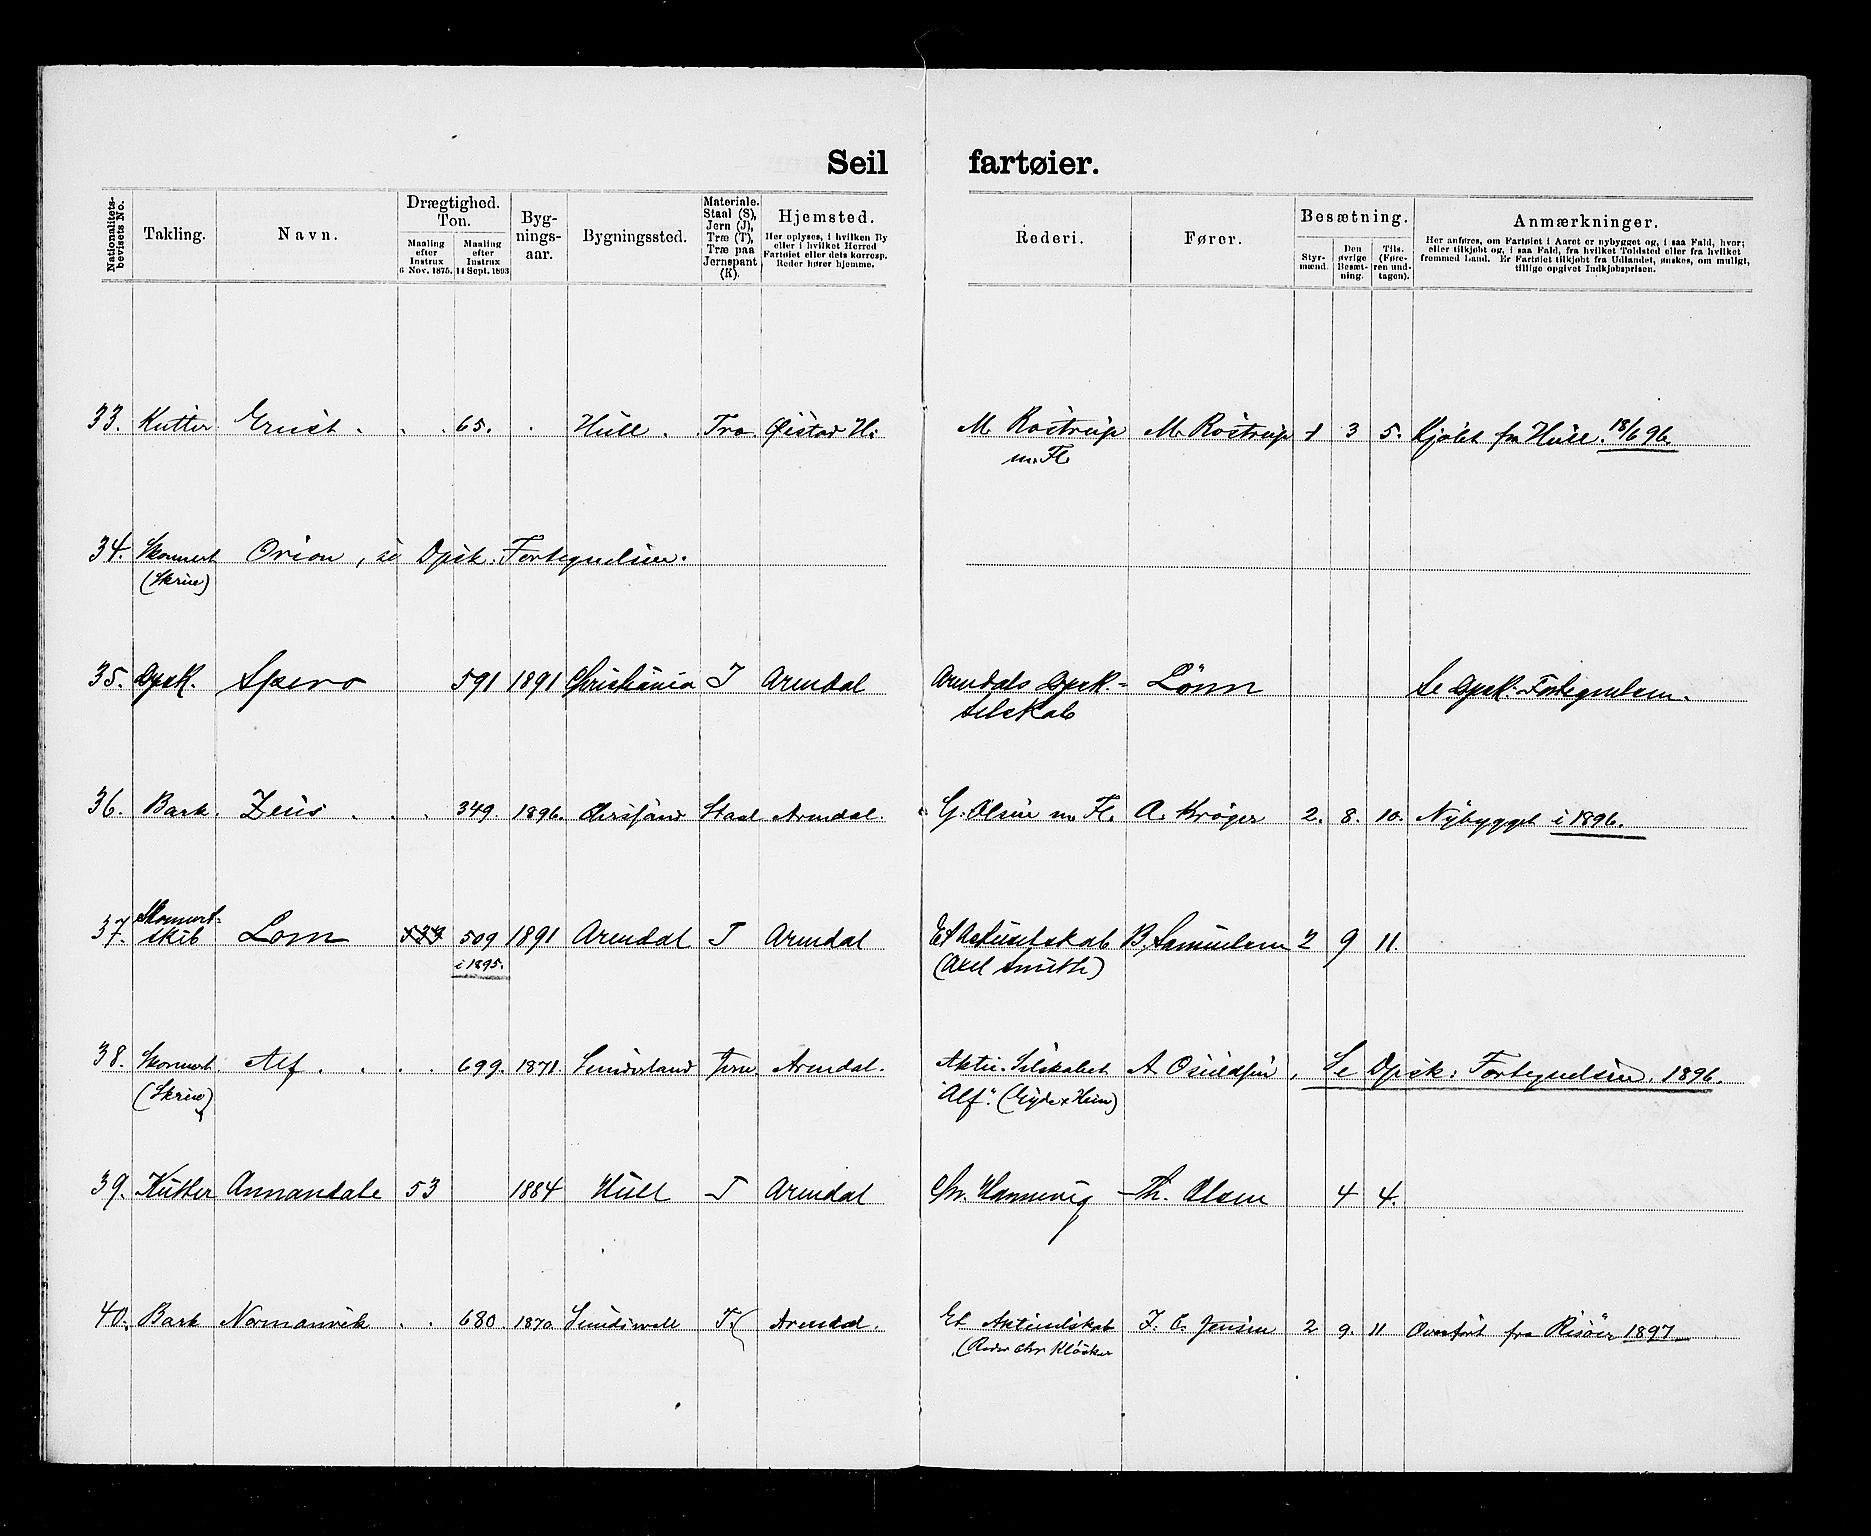 Seil fartøier.
Nationalitets-bevisets No.
Takling.
Navn.
Drægtighed. Ton.
Maaling efter Instrux 6 Nov. 1875.
Maaling efter Instrux 14 Sept. 1893
Byg-nings-aar.
Bygningssted.
Materiale. Staal (S), Jern (J), Træ (T), Træ paa Jernspant (K).
Hjemsted.
Her oplyses, i hvilken By eller i hvilket Herred Fartøiet eller dets korresp. Reder hører hjemme.
Rederi.
Fører.
Besætning.
Styr-mænd.
Den øvrige Besæt-ning.
Tils. (Føre-ren und-tagen).
Anmærkninger.
Her anføres, om Fartøiet i Aaret er nybygget og, i saa Fald, hvor; eller tilkjøbt og, i saa Fald, fra hvilket Toldsted eller fra hvilket fremmed Land. Er Fartøiet tilkjøbt fra Udlandet, ønskes, om muligt, tillige opgivet Indkjøbsprisen.
33. Kutter Ernst . . . 65. . Hull . Træ Øistad H: M Rostrup M. Rostrup 1 3 5. Kjøbt fra Hull. 18/6 96.
m. Fl.
34. Skonnert Orion, se Dpsk. Fortegnelsen.
(Skrue)
35. DpsK. Spero 591 1891 Christiania J Arendal Arendals DpsK.- Lönn Se DpsK. Fortegnelsen.
selskab
36. Bark. Zeus . . . 349. 1896. Staal Arendal. G. Olsen m. Fl. A. Krøger 2. 8. 10. Nybygget i 1896.
37. Skonnert-
skib Lorn 534 509 1891 Arendal T Arendal Et Actieselskab B. Samuelsen 2 9 11.
i 1895. (Axel Smith)
38. Skonnert Alf. . . . 699. 1871. Sunderland Jern. Arendal. Aktie-Selskabet A Osuldsen . Se Dpsk: Fortegnelsen. 1896.
(Skrue) "Alf". (Eyde & Heim)
39. Kutter Annandale 53 1884 Hull T Arendal Chr. Hannevig Th. Olsen 4 4.
40. Bark Normanvik . . 680. 1870. Sundsvall T. Arendal. Et Aktieselskab J. C. Jensen 2 9. 11 Overført fra Risöer 1897
(Reder Chr Klöcker